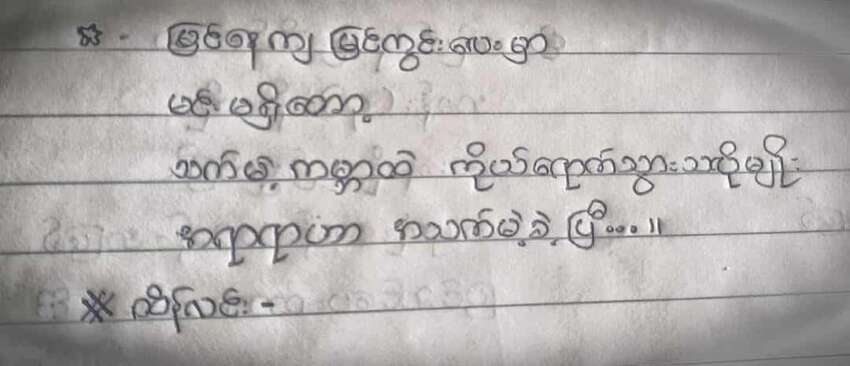 မြင်နေကျ မြင်ကွင်းလေးမှာ
မင်း မရှိတော့
သက်မဲ့ ကမ္ဘာထဲ ကိုယ်ရောက်သွားသလိုမျိုး
အရာရာဟာ အသက်မဲ့ခဲ့ပြီ...။
※ ထိန်လင်း -